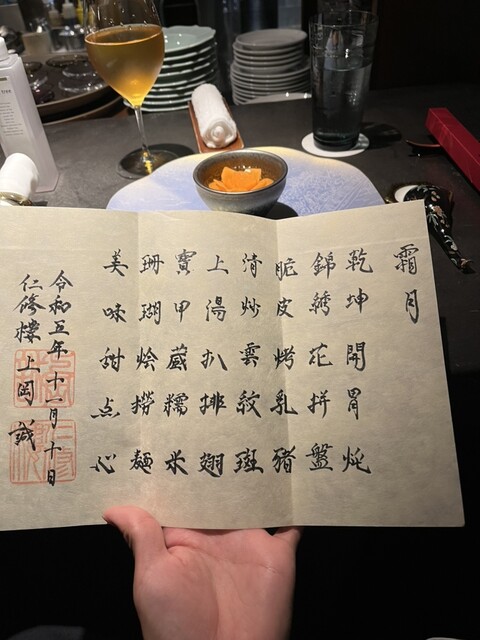 霜月
乾坤開胃炖
錦綉花拼盤
脆皮烤乳豬
清炒雲紋斑
上湯扒排翅
寳甲蔵糯米
珊瑚燴撈麵
美味甜点心
令和五年十一月十日
仁修樓 上岡誠